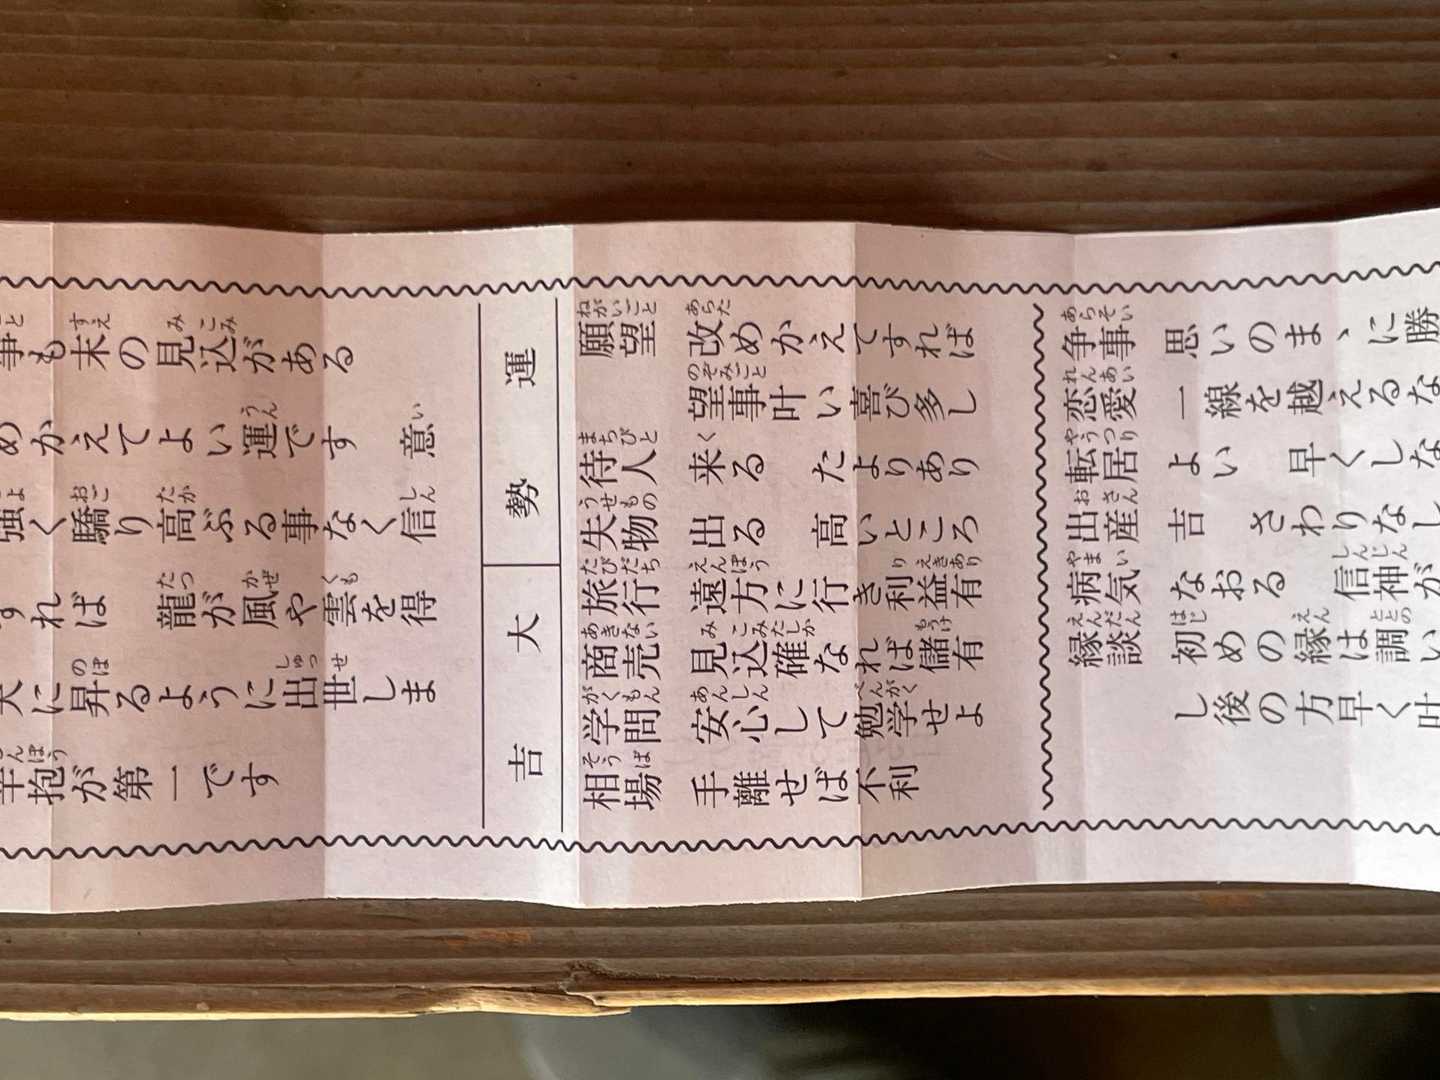 事も末の見込がある
めかえてよい運です　意
強く驕り高ぶる事なく信
すれば　龍が風や雲を得
天に昇るように出世しま
辛抱が第一です
運勢　大吉
願望　改めかえてすれば
望事叶い喜び多し
待人　来る　たよりあり
失物　出る　高いところ
旅行　遠方に行き利益有
商売　見込確なれば儲有
学問　安心して勉学せよ
相場　手離せば不利
争事　思いのまゝに勝
恋愛　一線を越えるな
転居　よい　早くしな
出産　吉　さわりなし
病気　なおる　信神が
縁談　初めの縁は調い
し後の方早く叶